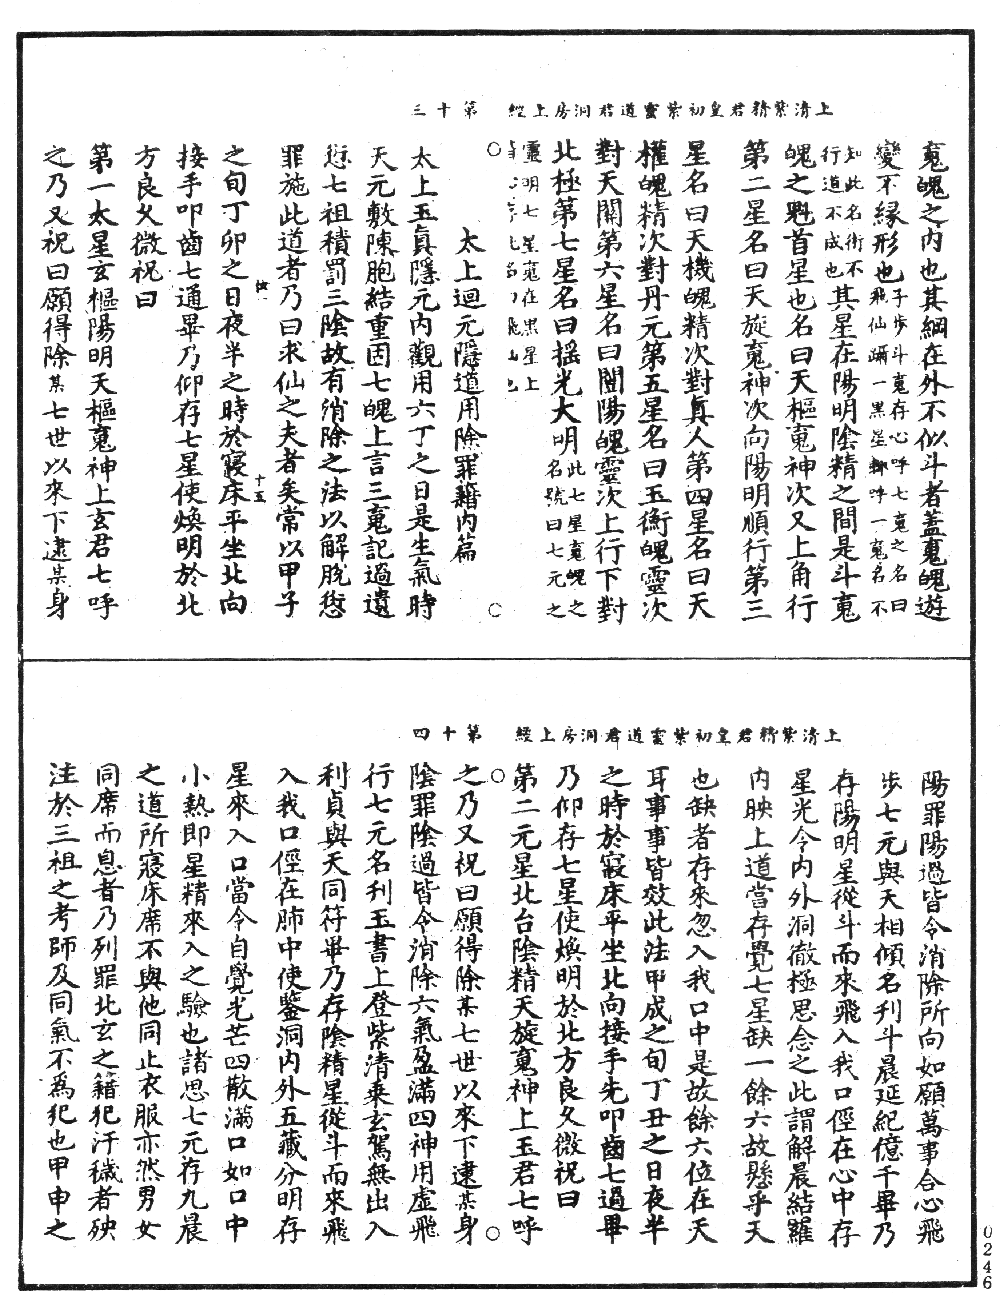 上清紫精君皇初紫靈道君洞房上經 第十三
䰟魄之內也其綱在外不似斗者蓋䰟魄遊
變不緣形也子步斗䰟存心呼七䰟之名曰飛仙躡一黑星輒呼一䰟名不
知此名術不行道不成也其星在陽明陰精之間是斗䰟
魄之魁首星也名曰天樞䰟神次又上角行
第二星名曰天旋䰟神次向陽明順行第三
星名曰天機魄精次對真人第四星名曰天
權魄精次對丹元第五星名曰玉衡魄靈次
對天關第六星名曰闓陽魄靈次上行下對
北極第七星名曰摇光大明此七星䰟魄之名號曰七元之
靈明七星䰟在黑星上
太上迴元隱道用除罪籍內篇
太上玉真隱元內觀用六丁之日是生氣時
天元敷陳胞結重因七魄上言三䰟記過遺
愆七祖積罰三陰故有消除之法以解脫愆
罪施此道者乃曰求仙之夫者矣常以甲子
之旬丁卯之日夜半之時於寢床平坐北向
接手叩齒七通畢乃仰存七星使煥明於北
方良久微祝曰
第一太星玄樞陽明天樞䰟神上玄君七呼
之乃又祝曰願得除某七世以來下逮某身
上清紫精君皇初紫靈道君洞房上經 第十四
陽罪陽過皆令消除所向如願萬事合心飛
步七元與天相傾名刋斗晨延紀億千畢乃
存陽明星從斗而來飛入我口俓在心中存
星光令內外洞徹極思念之此謂解晨結羅
內映上道當存覺七星缺一餘六故懸乎天
也缺者存來忽入我口中是故餘六位在天
耳事事皆效此法甲戌之旬丁丑之日夜半
之時於寢床平坐北向接手先叩齒七過畢
乃仰存七星使煥明於北方良久微祝曰
第二元星北台陰精天旋䰟神上玉君七呼
之乃又祝曰願得除某七世以來下逮某身
陰罪陰過皆令消除六氣盈滿四神用虛飛
行七元名刋玉書上登紫清乗玄駕無出入
利貞與天同符畢乃存陰精星從斗而來飛
入我口俓在肺中使鑒洞內外五藏分明存
星來入口當令自覺光芒四散滿口如口中
小熱即星精來入之驗也諸思七元存九晨
之道所寢床席不與他同止衣服亦然男女
同席而息者乃列罪北玄之籍犯汙穢者殃
注於三祖之考師及同氣不為犯也甲申之
0246